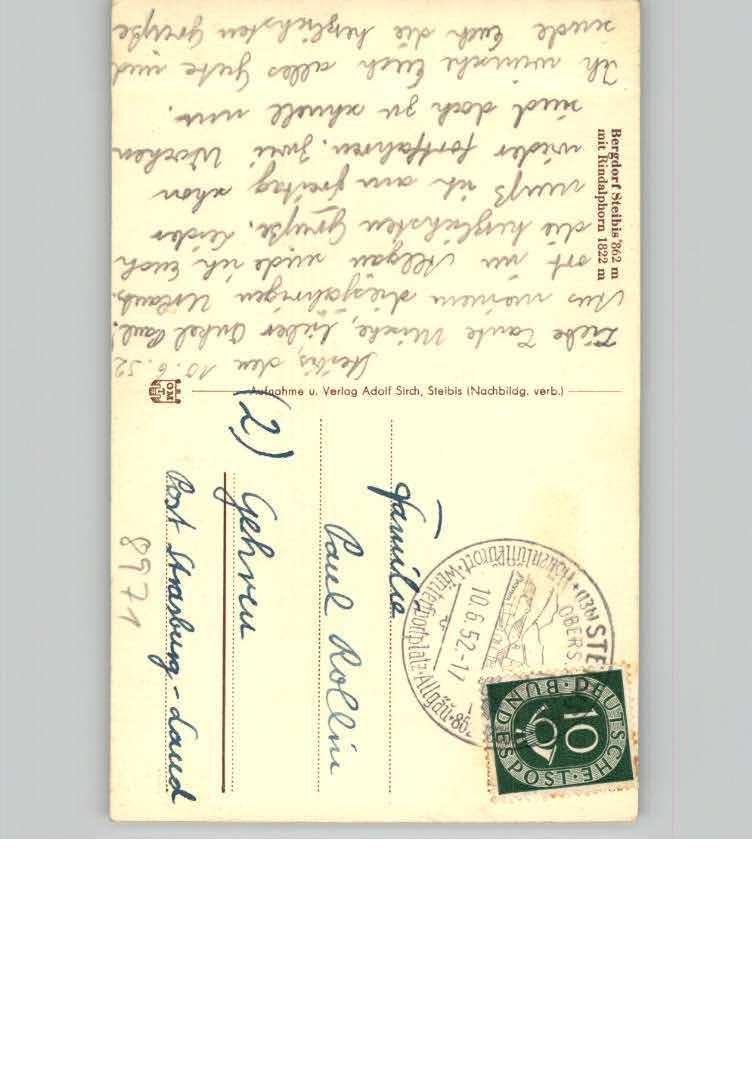 Bergdorf Steibis 862 m
mit Rindalphorn 1822 m
Steibis, den 10.6.52
Liebe Tante Mieke, lieber Onkel Paul!
Aus meinem diesjährigen Urlaubs-
ort im Allgäu sende ich Euch
die herzlichsten Grüße. Leider
muß ich am Freitag schon
wieder fortfahren. Zwei Wochen
sind doch zu schnell um.
Ich wünsche Euch alles Gute und
sende Euch die herzlichsten Grüße
Aufnahme u. Verlag Adolf Sirch, Steibis (Nachbildg. verb.)
OM
Familie
Paul Rollin
(2) Gehren
Post Strasburg-Land
8971
10.6.52.-17
Höhenluftkurort · Wintersportplatz · Allgäu
DEUTSCHE BUNDESPOST
10